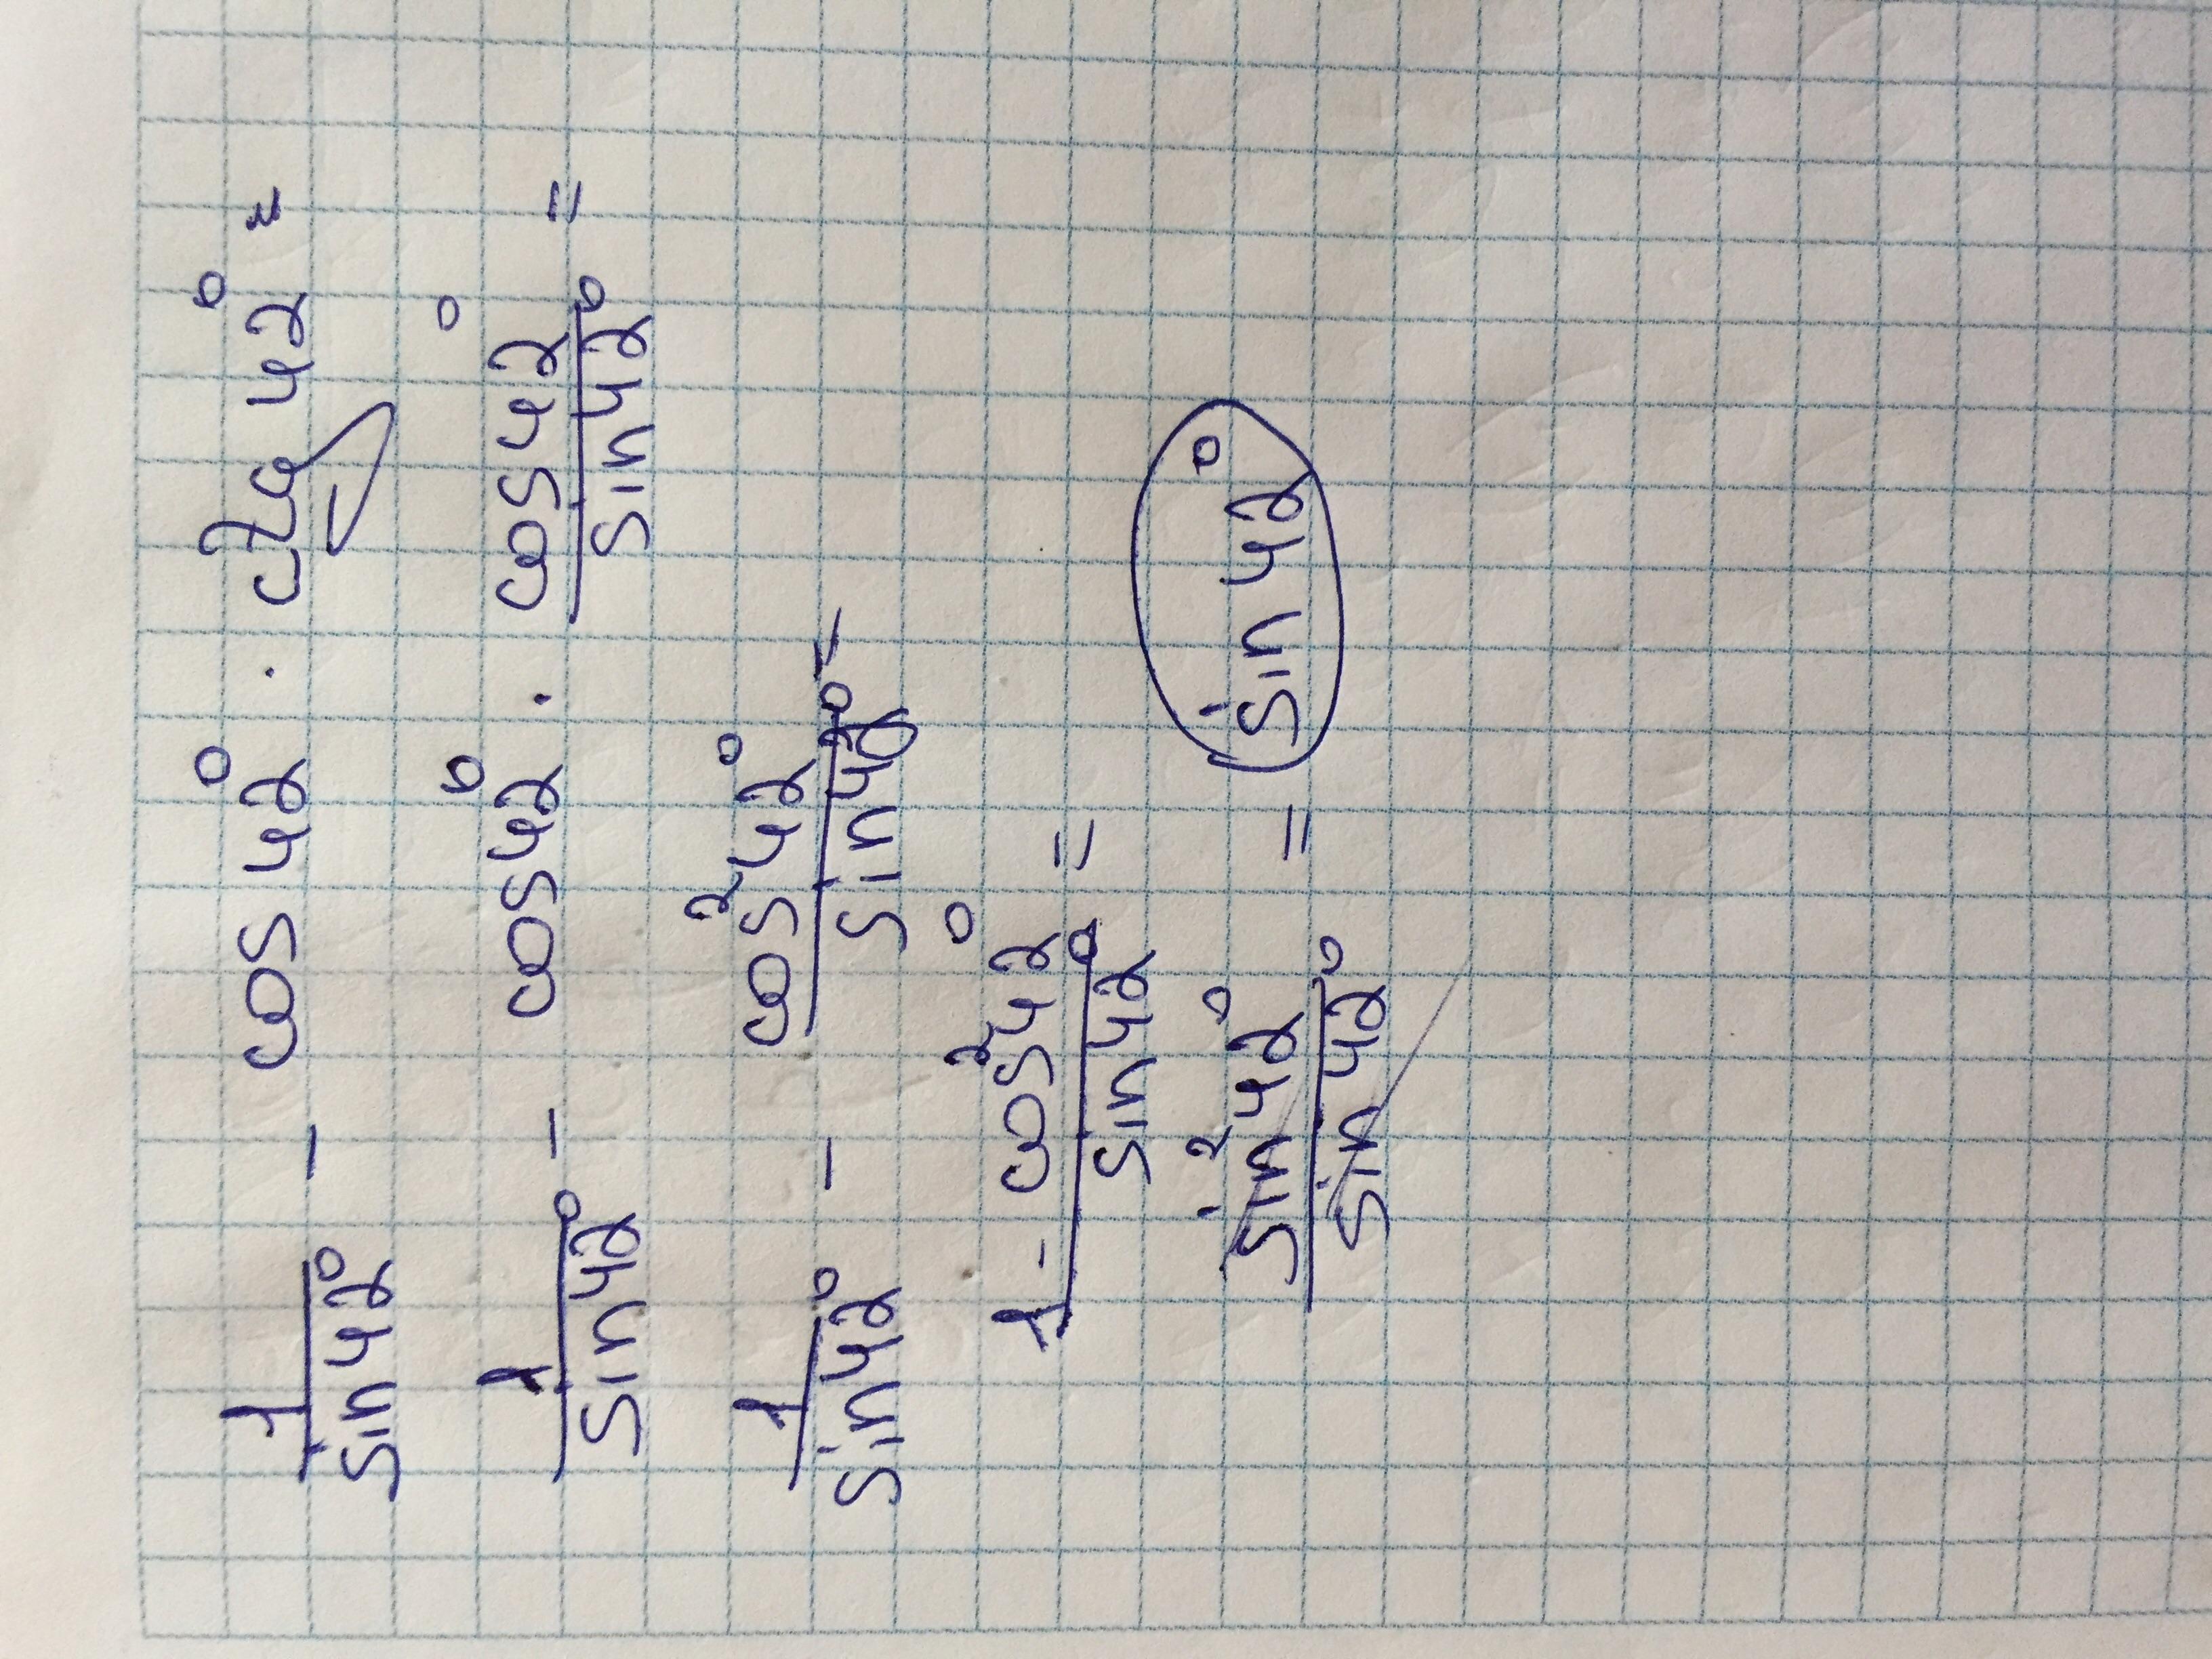 1/sin 42° - cos 42° · ctg 42° =
1/sin 42° - cos 42° · cos 42°/sin 42° =
1/sin 42° - cos² 42°/sin 42° =
1 - cos² 42°/sin 42° =
sin² 42°/sin 42° = sin 42°